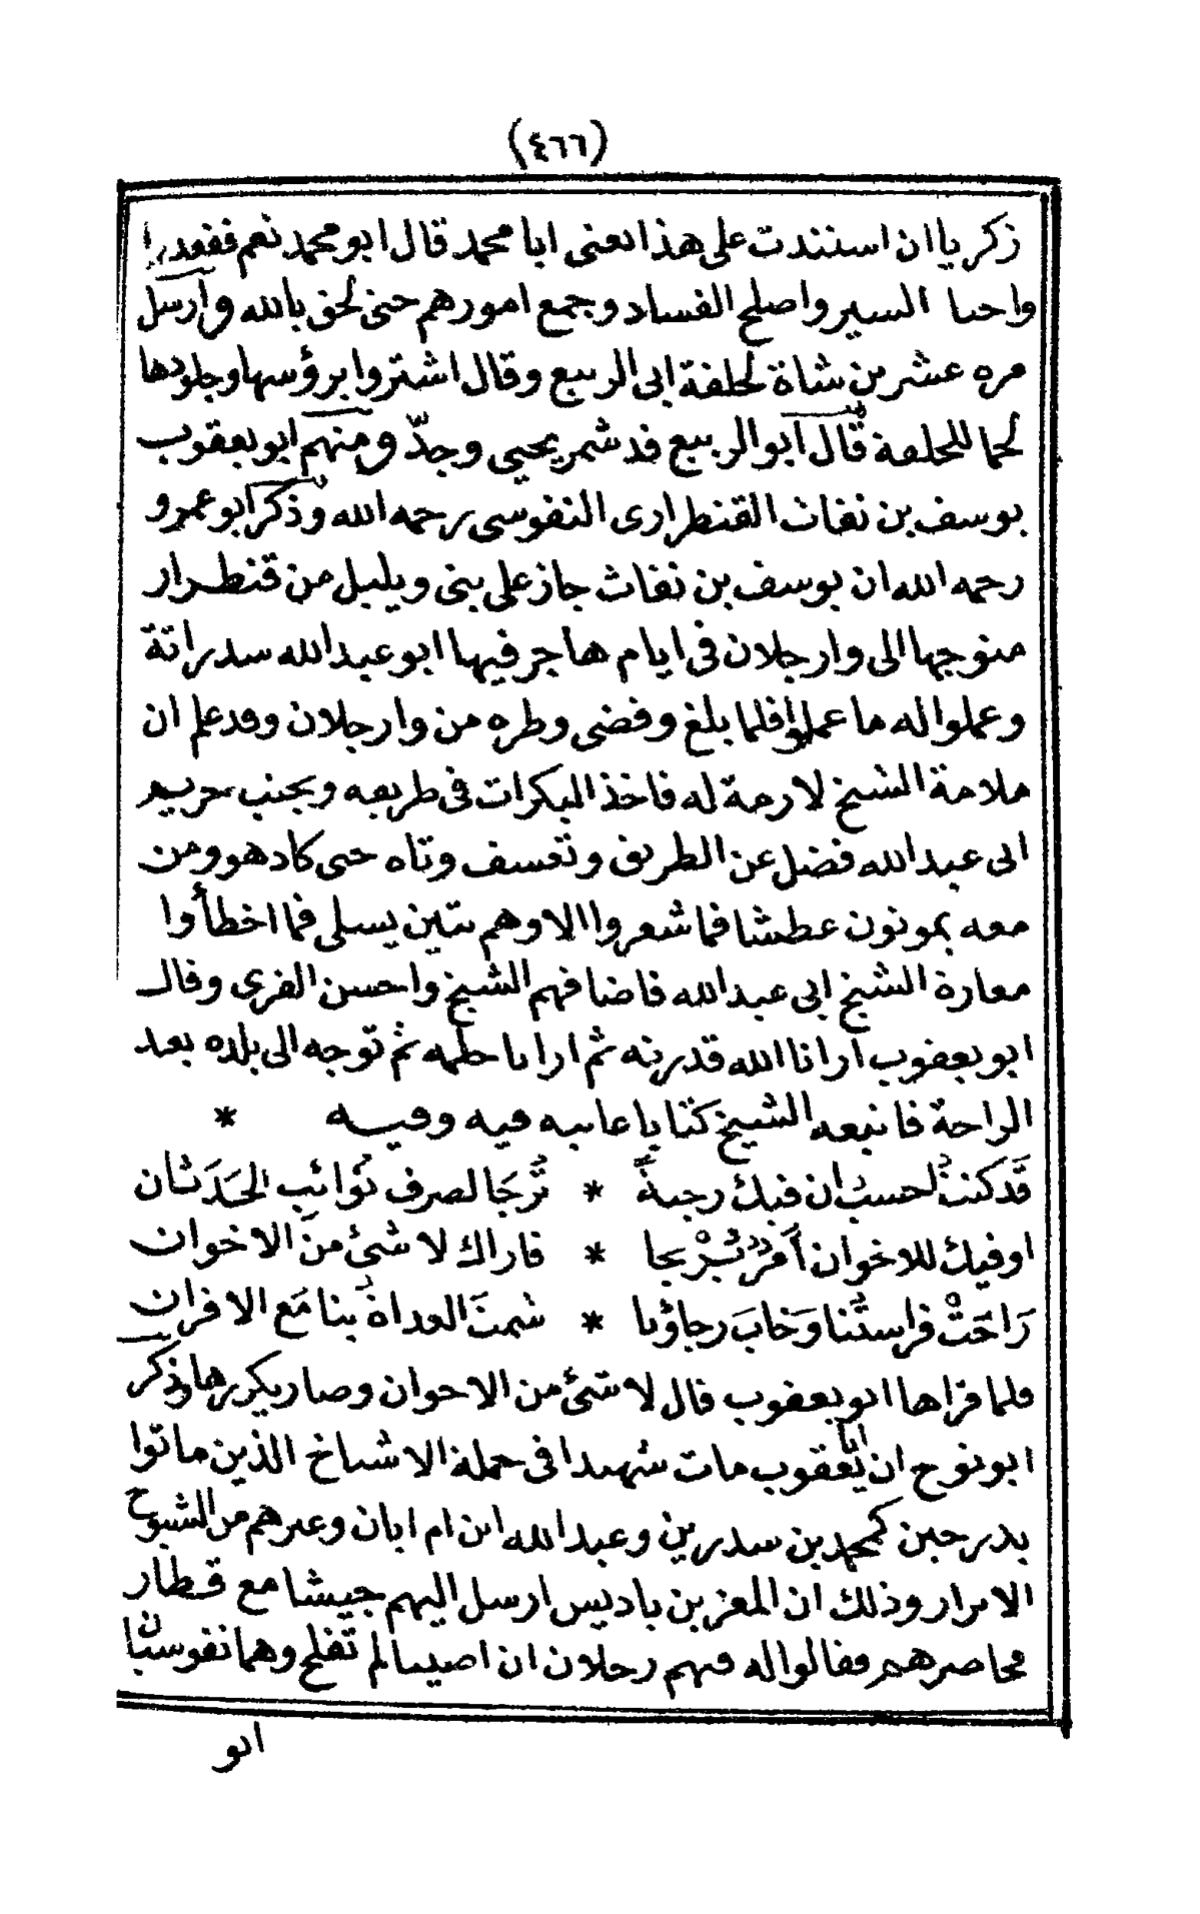 (٤٦٦)
زكرياا ان استندت على هذا يعنى ابا محمد قال ابو محمد نعم فقعد
واحيا السير واصلح الفساد وجمع امورهم حتى لحق بالله وارسل
مره عشرين شاة لحلقة ابى الربيع وقال اشتروا برؤسها وجلودها
لحما للحلقة قال ابو الربيع قد شمر يحيى وجدّ ومنهم ابو يعقوب
يوسف بن نفاث القنطرارى النفوسى رحمه الله وذكر ابو عمرو
رحمه الله ان يوسف بن نفاث جاز على بنى ويليل من قنطرار
متوجها الى وارجلان فى ايام هاجر فيها ابو عبد الله سدراتة
وعملوا له ما عملوا فلما بلغ وقضى وطره من وارجلان وقد علم ان
ملامة الشيخ لازمة له فاخذ البكرات فى طريقه ويجنب حريم
ابى عبد الله فضل عن الطريق وتعسف وتاه حتى كاد هو ومن
معه يموتون عطشا فما شعروا الا وهم بتين يسلى فما اخطأوا
مغارة الشيخ ابى عبد الله فاضافهم الشيخ واحسن القرى وقال
ابو يعقوب ارانا الله قدرته ثم ارانا حلمه ثم توجه الى بلده بعد
الراحة فاتبعه الشيخ كتابا عاتبه فيه وفيه *
قَدكنتُ لحسبُ ان فيك رجيةً * تُرجَا لصرف نُوائب الحَدَثان
اوفيك للاخوان أمرٌ يُرْيجا * فاراك لا شئ منَ الاخوان
رَاحَتْ فراستُنا وَخابَ رجاؤنا * شمتَ العداةُ بنا مَع الاقران
فلما قراها ابو يعقوب قال لا شئ من الاخوان وصار يكررها وذكر
ابو نوح ان ابا يعقوب مات شهيدا فى جملة الاشياخ الذين ماتوا
بدرجين كمحمد بن سدرين وعبد الله ابن ام ابان وغيرهم من الشيوخ
الابرار وذلك ان المعز بن باديس ارسل اليهم جيشا مع قطار
محاصرهم فقالوا له فيهم رجلان ان اصيبا لم تفلح وهما نفوسيان
ابو